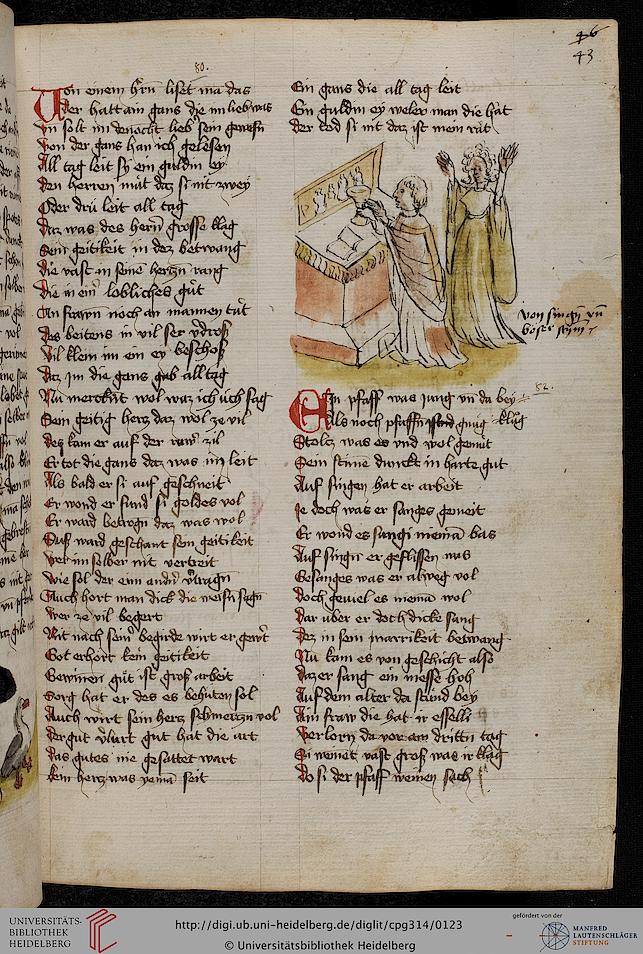 46
43
80.
Von einem hrn̄ liset ma das
Der hatt ain gans die im lieb was
Vn solt im dennocht lieb sein gewesn̄
Von der gans han ich gelesen
All tag leit sy ein guldin ey
Den herren mut daz si nit zwey
Oder drú leit all tag
Daz was des hern̄ grosse klag
Sein geitikeit in dez betwang
Die vast in seinē hertzn̄ rang
Die in ein lobliches gůt
An frawn noch an mannen tůt
Des beitens in vil ser v̓droß
Vil klein im ein ey beschoß
Daz jm die gans gab all tag
Nu merckāt wol waz ich úch sag
Sein geitig hertz daz wolt ze vil
Dez kam er auf der ruw zil
Er tot die gans daz was im leit
Als bald er si auf geschneit
Er wond er fund si goldes vol
Er ward betrogn̄ daz was wol
Suß ward geschant sein geitikeit
Wer im selber nit vertreit
Wie sol der ein andn̄ v̓tragn̄
Auch hort man dick die weisn̄ sagn̄
Wer ze vil begert
Nit nach sein̓ begirde wirt er gew̓t
Got erhört kein geitikeit
Gewinen gůt ist groß arbeit
Sorg hat er des es behůten sol
Auch wirt sein hertz schmertzn̄ vol
Der gůt v̓lúrt gůt hat die art
Das gutes nie gesattet wart
Kein hertz was yema seit
Ein gans die all tag leit
Ein guldin ey weler man die hat
Der tod si nit daz ist mein rat
von singn̄ vn̄
böser stym
82.
Ein pfaff was jung vn̄ da bey
Als noch pfaffn̄ sind gnůg klůg
Stoltz was es vnd wol gemůt
Sein stime dunckt in harte gut
Auf singen hat er arbeit
Je doch was er sanges gemeit
Er wond es sungi niemā bas
Auf singn̄ er geflissen was
Gesanges was er alweg vol
Doch geuiel es niemā wol
Dar uber er doch dicke sang
Dez in sein narrikeit betwang
Nu kam es von geschicht also
Daz er sang ein messe hoh
Auf dem alter da stůnd bey
Ain fraw die hat ir esselli
Verlorn da vor am drittn̄ tag
Si weinet vast groß was ir klag
Do si der pfaff weinen sach
UNIVERSITÄTS-
BIBLIOTHEK
HEIDELBERG
http://digi.ub.uni-heidelberg.de/diglit/cpg314/0123
© Universitätsbibliothek Heidelberg
gefördert von der
MANFRED
LAUTENSCHLÄGER
STIFTUNG